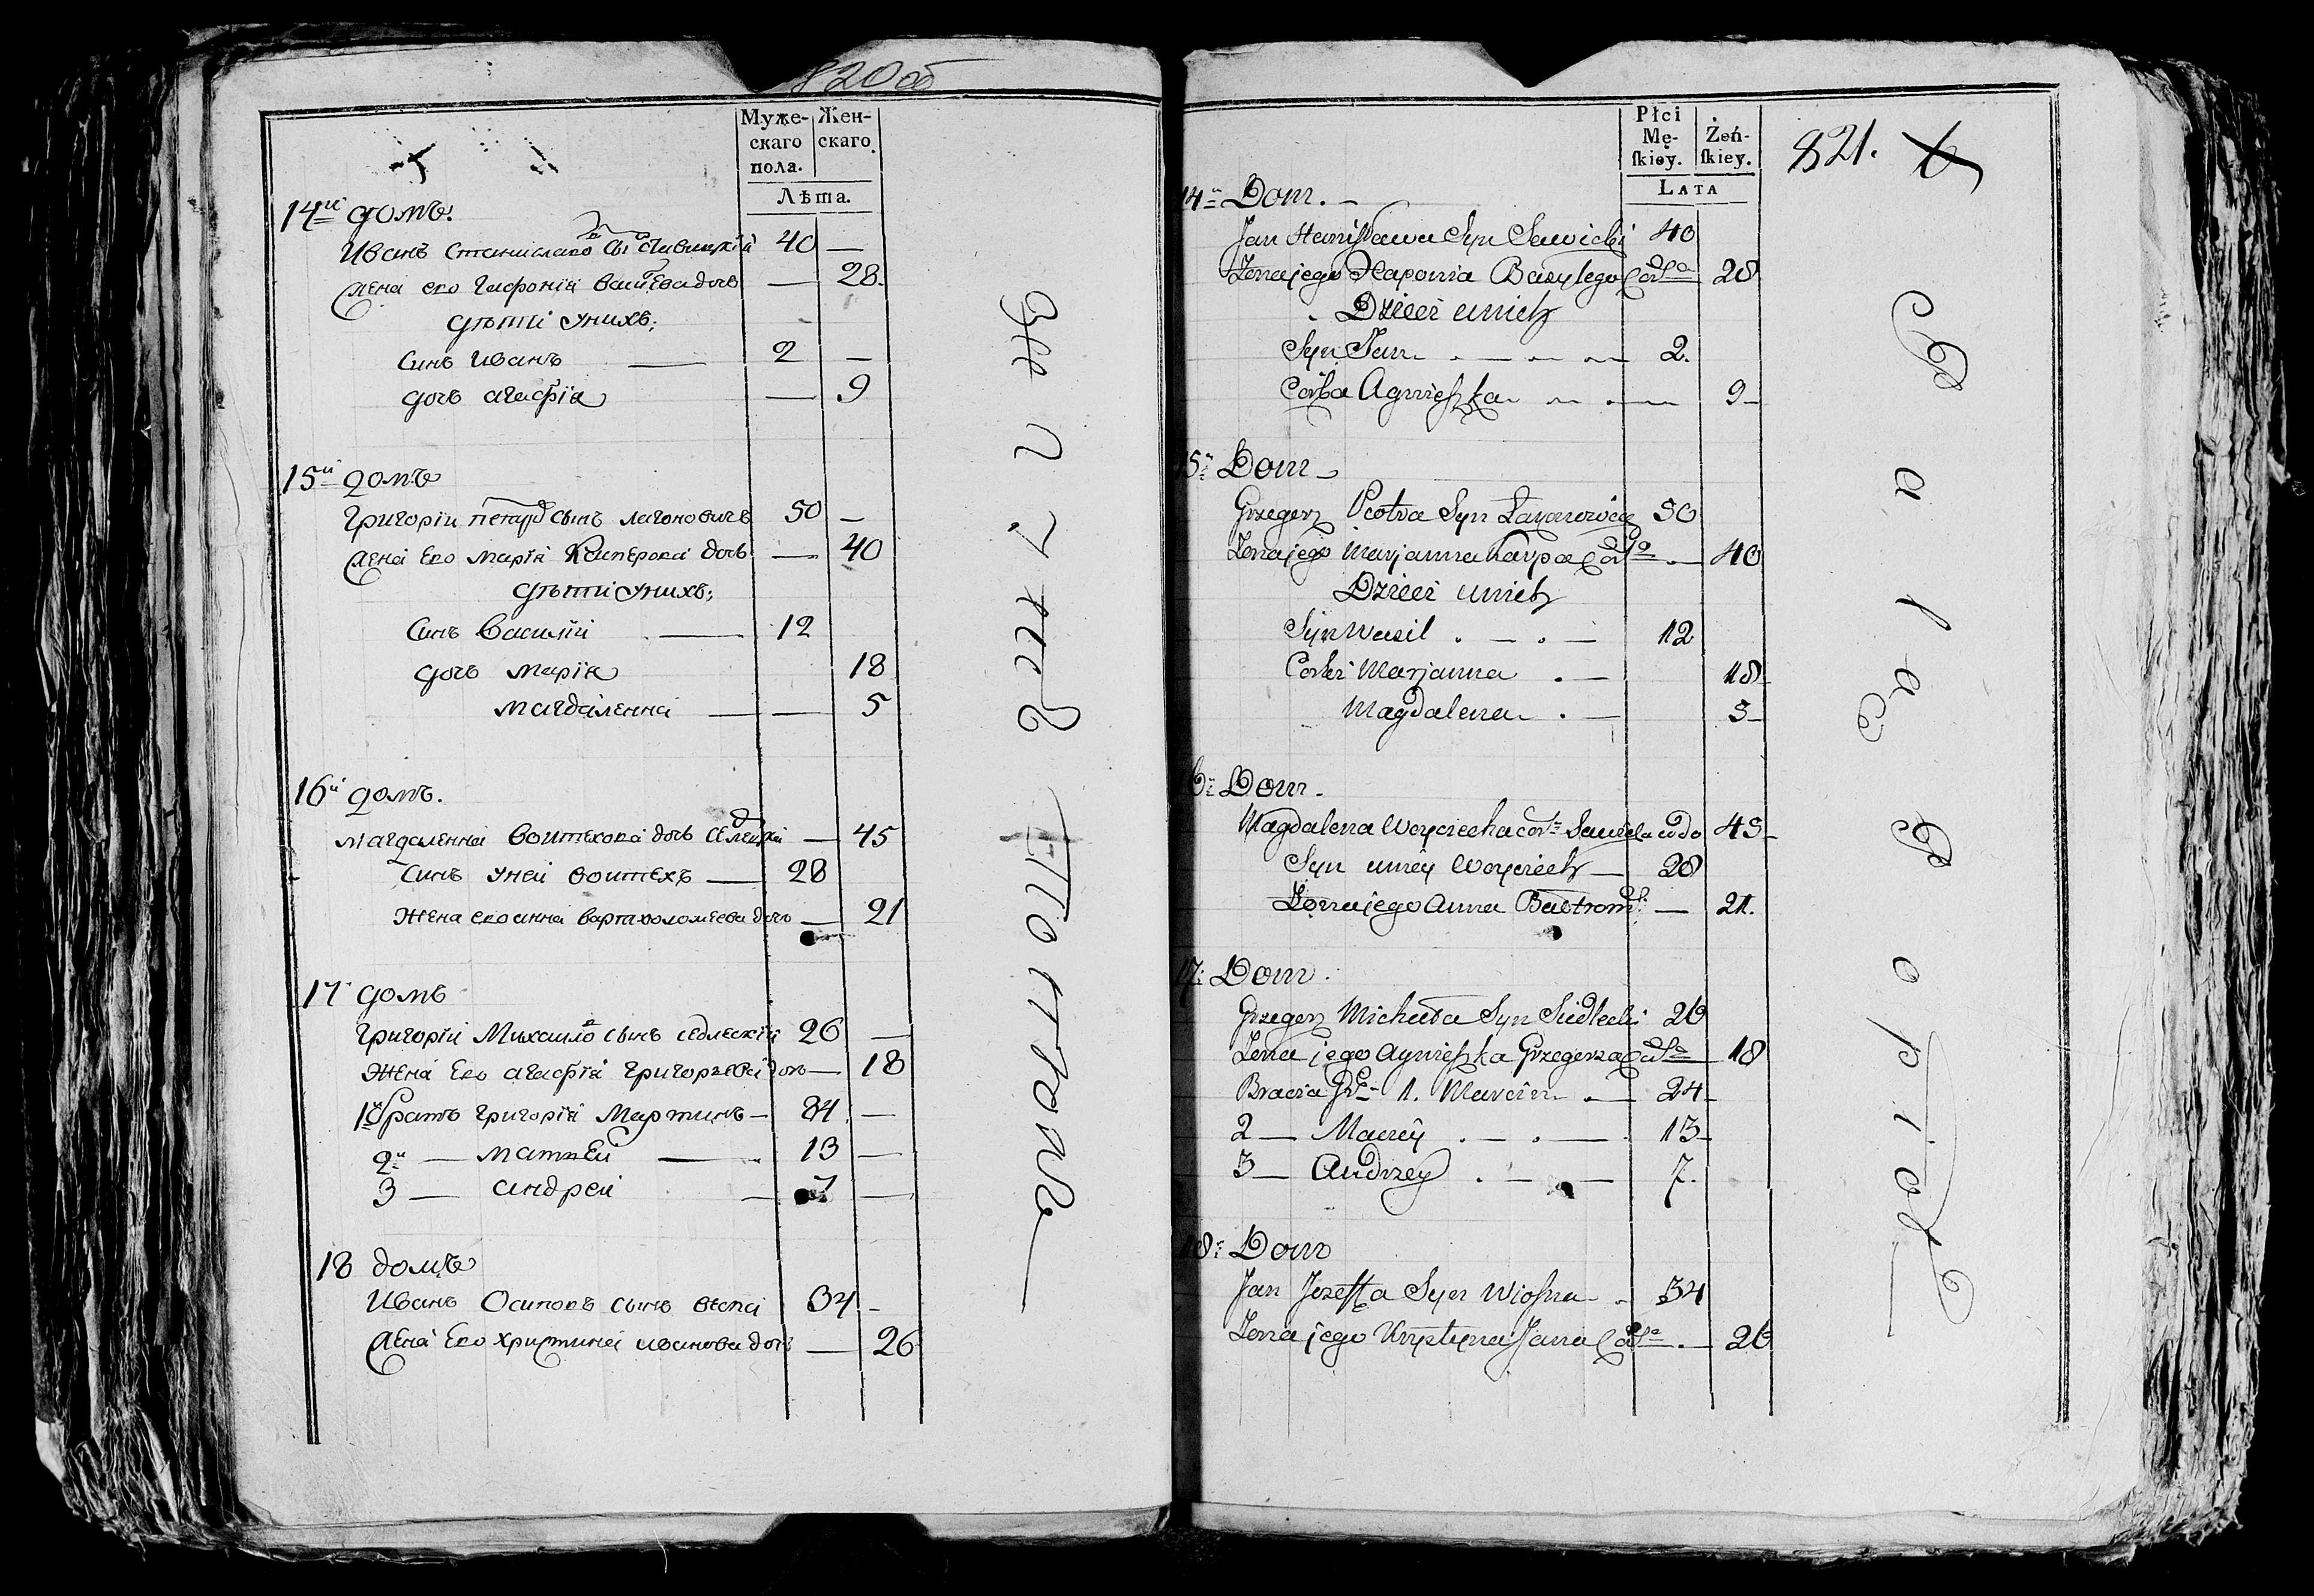 820 об
Муже-
скаго
пола.
Жен-
скаго.
Лѣта.
14й домъ.
Иванъ Станиславо сы Савицкій 40 —
жена его Гапонія Васиева дочь — 28.
дѣти унихъ;
Синъ Иванъ — 2 —
дочь агафія — 9
15й домъ
Григорій петаръ сынъ лагоновичъ 50 —
жена Его Марія дочь — 40
дѣти унихъ;
Синъ Василій — 12
дочь Марія 18
Магдаленна — — 5
16й домъ.
Магдаленна Воитехова дочь — 45
Синъ уней воитехъ — 28
Жена его анна вартахоломеева дочь — 21
17 домъ
Григорій Михаило сынъ седлескій 26 —
Жена Его агафія григорьева дочь — 18
1й братъ григорія Мартинъ — 24 —
2й — матѣеи — 13 —
3 — андреи — 7 —
18 домъ
Иванъ Осиповъ сынъ весна 34 -
жена Его христина иванова дочь — 26
Płci
Mę-
ſkiey.
Żeń-
ſkiey.
Lata
821. 6
14й Dom. –
Jan Stanisława Syn Sawicki 40
Zona jego Haponia Bazylego Corka 28
Dzieci unich
Syn Jan 2.
Corka Agnieszka 9
15: Dom
Grzegorz Piotra Syn Łaganowicz 50
Zona jego Marjanna Karpa Corka — 40
Dzieci unich
Syn Wasil . — . — 12
Corki Marjanna . — 18
Magdalena . — 5
16: Dom.
Magdalena Woyciecha cor: wdo 45
Syn uniey Woyciech — 28
Zona jego Anna Bartrom: — 21.
17: Dom.
Grzegorz Michała Syn Siedlecki 26
Zona jego Agnieszka Grzegorza Corka 18
Bracia Grze 1. Marcin . — 24
2 — Maciey . — . — 13
3 — Andrzey . — . — 7.
18: Dom
Jan Jozeffa Syn Wiosna 34
Zona jego Krystyna Jana Corka . — 26